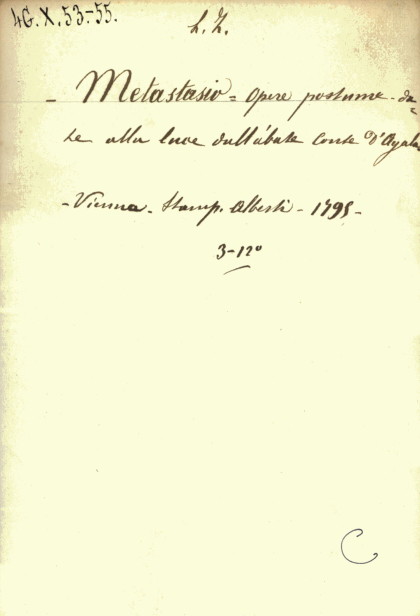 4G.X.53-55.
L.Z.
- Metastasio = Opere postume - da=
te alla luce dall'abate Conte D'Ayala
- Vienna - Stamp. Alberti - 1795 -
3-12°
C